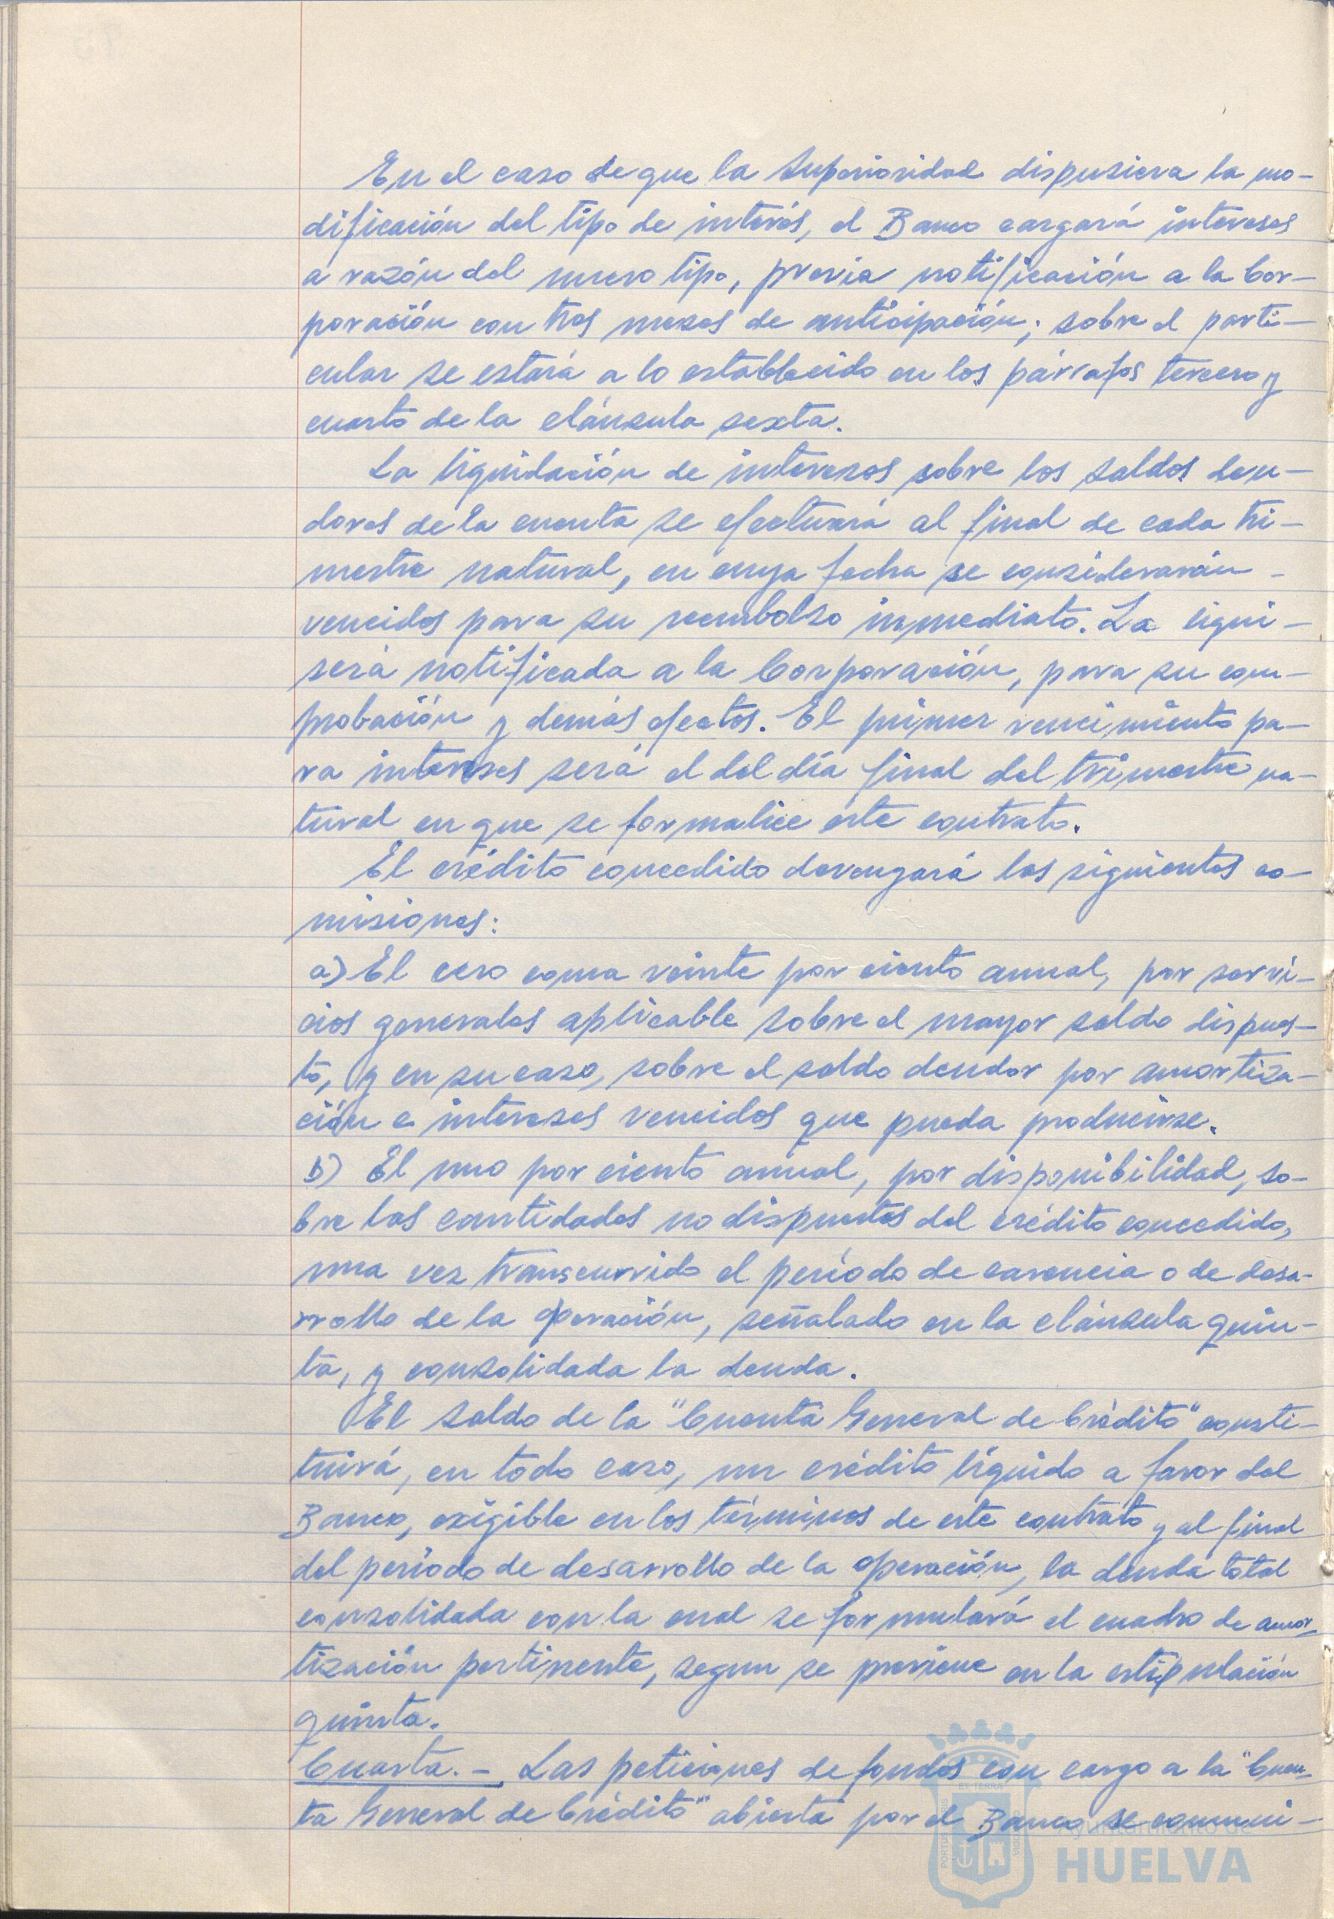 En el caso de que la Superioridad dispusiera la mo-
dificación del tipo de interés, el Banco cargará intereses
a razón del nuevo tipo, previa notificación a la Cor-
poración con tres meses de anticipación; sobre el parti-
cular se estará a lo establecido en los párrafos tercero y
cuarto de la cláusula sexta.
La liquidación de intereses sobre los saldos deu-
dores de la cuenta se efectuará al final de cada tri-
mestre natural, en cuya fecha se considerarán -
vencidos para su reembolso inmediato. La liqui-
será notificada a la Corporación, para su com-
probación y demás efectos. El primer vencimiento pa-
ra intereses será el del día final del trimestre na-
tural en que se formalice este contrato.
El crédito concedido devengará las siguientes co-
misiones:
a) El cero coma veinte por ciento anual, por servi-
cios generales aplicable sobre el mayor saldo dispues-
to, y en su caso, sobre el saldo deudor por amortiza-
ción e intereses vencidos que pueda producirse.
b) El uno por ciento anual, por disponibilidad, so-
bre las cantidades no dispuestas del crédito concedido,
una vez transcurrido el período de carencia o de desa-
rrollo de la operación, señalado en la cláusula quin-
ta, y consolidada la deuda.
El saldo de la "Cuenta General de Crédito" consti-
tuirá, en todo caso, un crédito líquido a favor del
Banco, exigible en los términos de este contrato y al final
del período de desarrollo de la operación, la deuda total
consolidada con la cual se formulará el cuadro de amor-
tización pertinente, segun se previene en la estipulación
quinta.
Cuarta. - Las peticiones de fondos con cargo a la "Cuen-
ta General de Crédito" abierta por el Banco, se comuni-
Ayuntamiento de
HUELVA